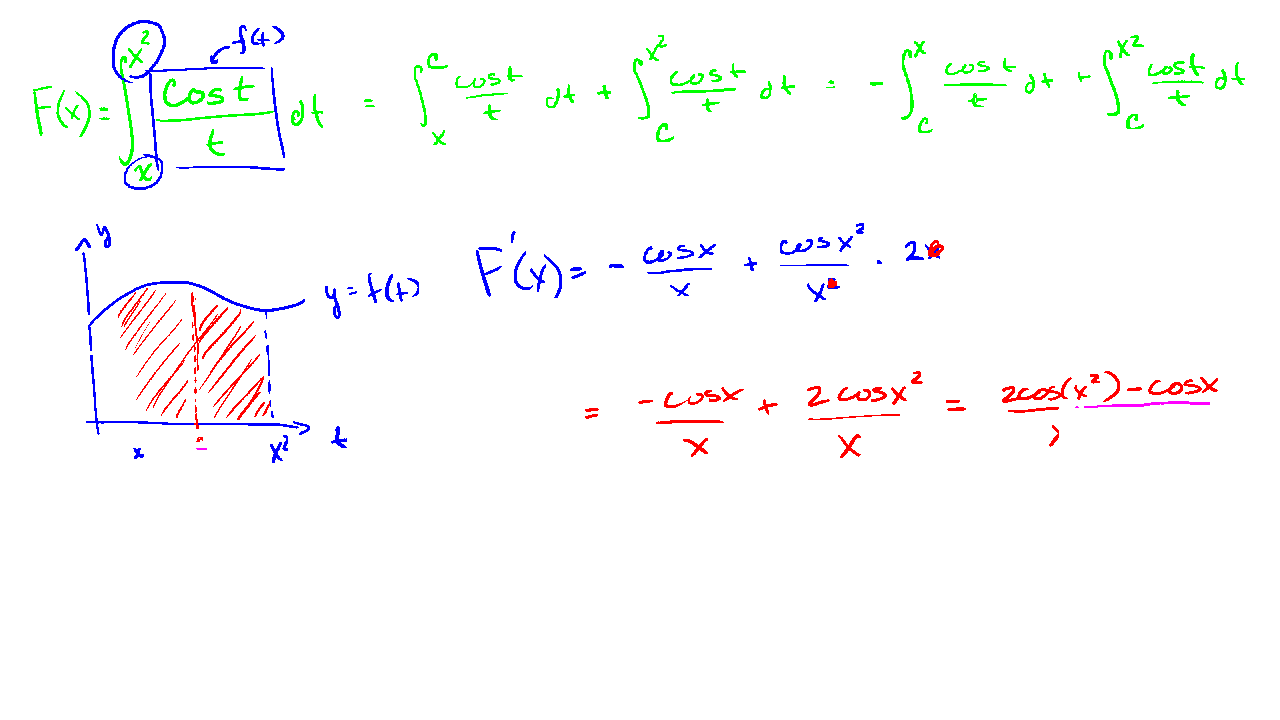 f(t)
F(x) = ∫_x^{x²} cos t / t dt = ∫_x^c cos t / t dt + ∫_c^{x²} cos t / t dt = - ∫_c^x cos t / t dt + ∫_c^{x²} cos t / t dt
y
F'(x) = - cos x / x + cos x² / x · 2
y = f(t)
x x² t
= -cos x / x + 2 cos x² / x = 2cos(x²) - cos x / x